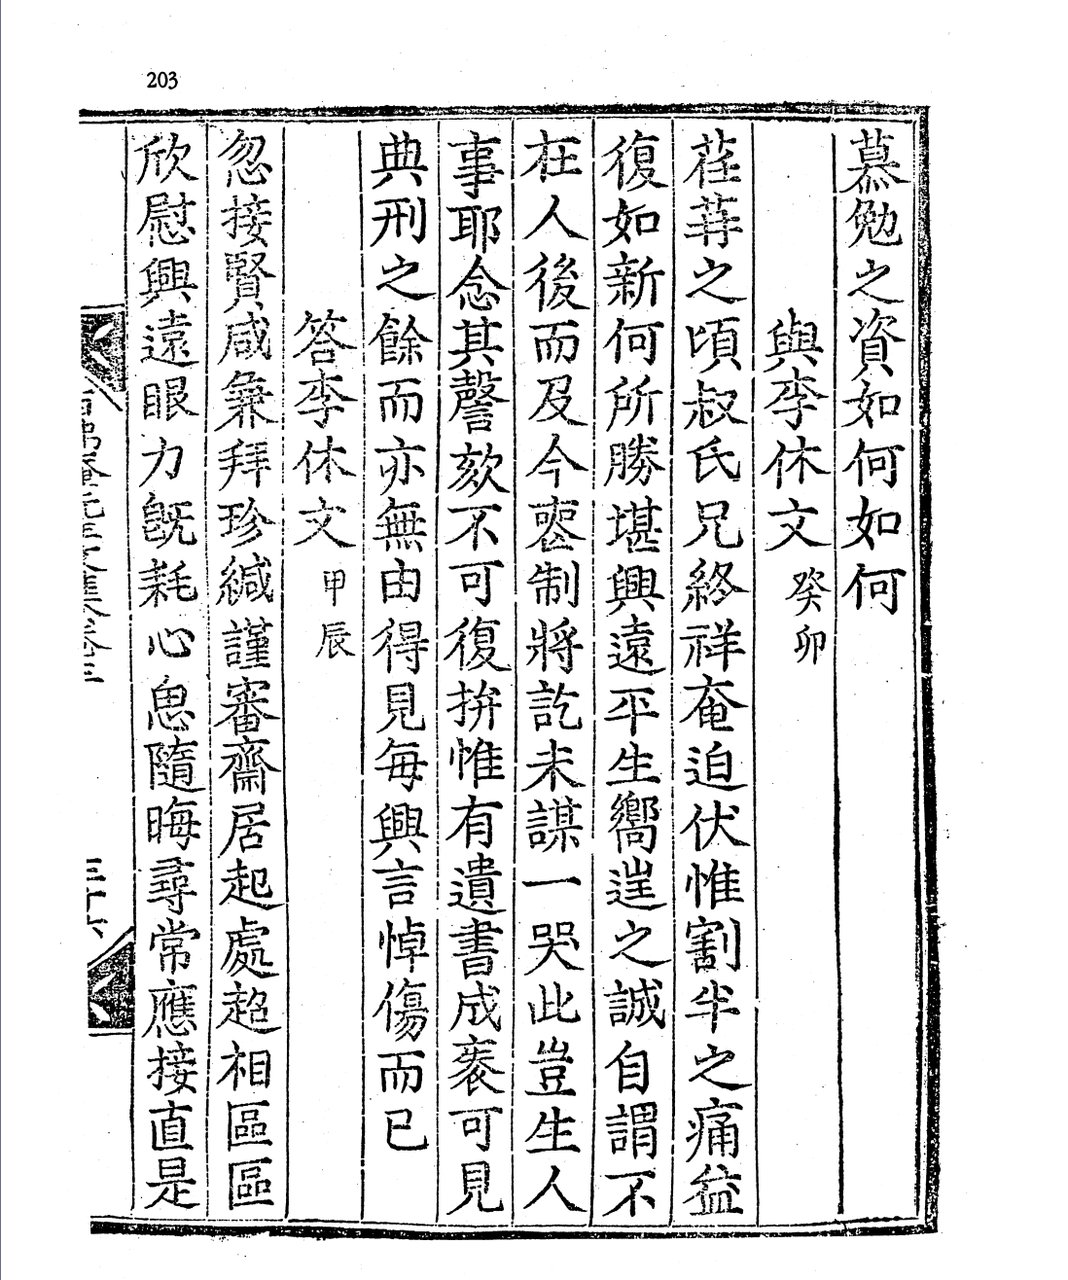 203
慕勉之資如何如何
與李休文 癸卯
荏苒之頃叔氏兄終祥奄迫伏惟割半之痛益
復如新何所勝堪興遠平生嚮達之誠自謂不
在人後而及今喪制將訖未謀一哭此豈生人
事耶念其謦欬不可復拚惟有遺書成袠可見
典刑之餘而亦無由得見每興言悼傷而已
答李休文 甲辰
忽接賢咸兼拜珍緘謹審齋居起處超相區區
欣慰興遠眼力旣耗心思隨晦尋常應接直是
三十六